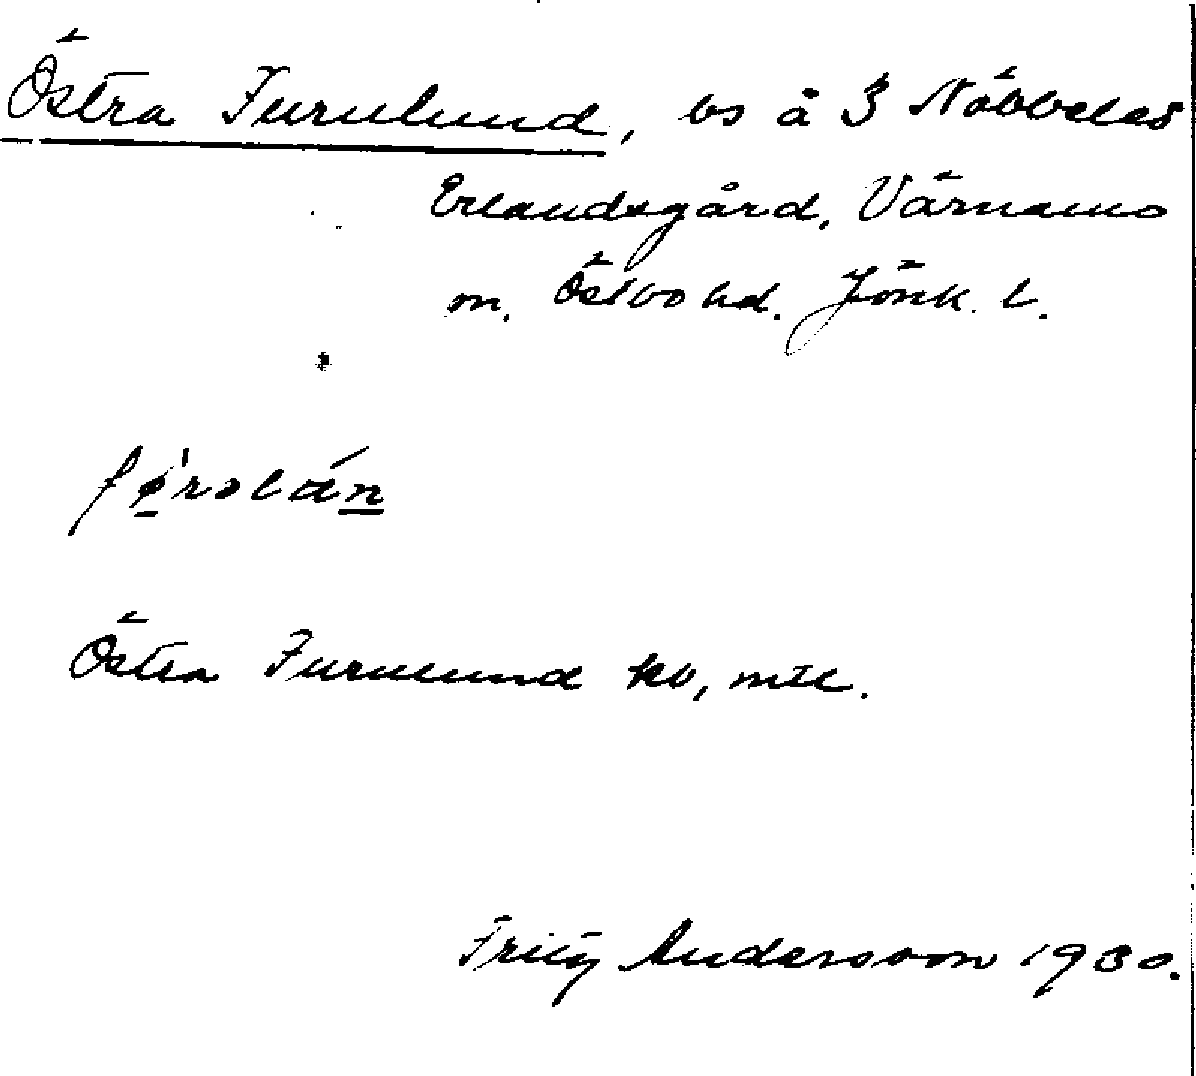 Östra Furulund, bs å 3 Näbbelås
Erlandsgård, Värnamo
m. Östbo hd. Jönk. l.
Östra Furulund kb, mtl.
Fritz Andersson 1930.